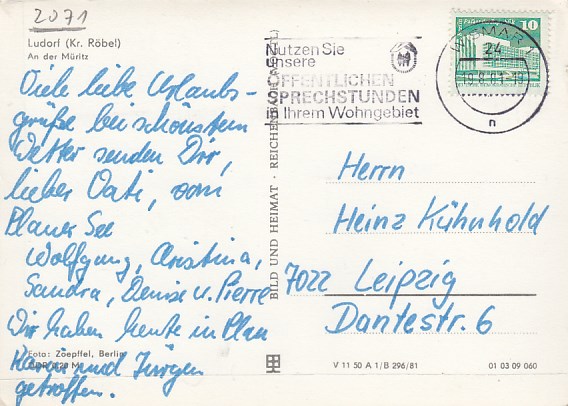 2071
Ludorf (Kr. Röbel)
An der Müritz
Viele liebe Urlaubs-
grüße bei schönstem
Wetter senden Dir,
lieber Vati, vom
Plauer See
Wolfgang, Christina,
Sandra, Denise u. Pierre
Wir haben heute in Plau
Foto: Zoepffel, Berlin
Karin und Jürgen
getroffen.
BILD UND HEIMAT · REICHENBACH
Nutzen Sie
unsere
ÖFFENTLICHEN
SPRECHSTUNDEN
in Ihrem Wohngebiet
WISMAR
24
-19
n
10
Herrn
Heinz Kühnhold
7022 Leipzig
Dantestr. 6
V 11 50 A 1/B 296/81
01 03 09 060